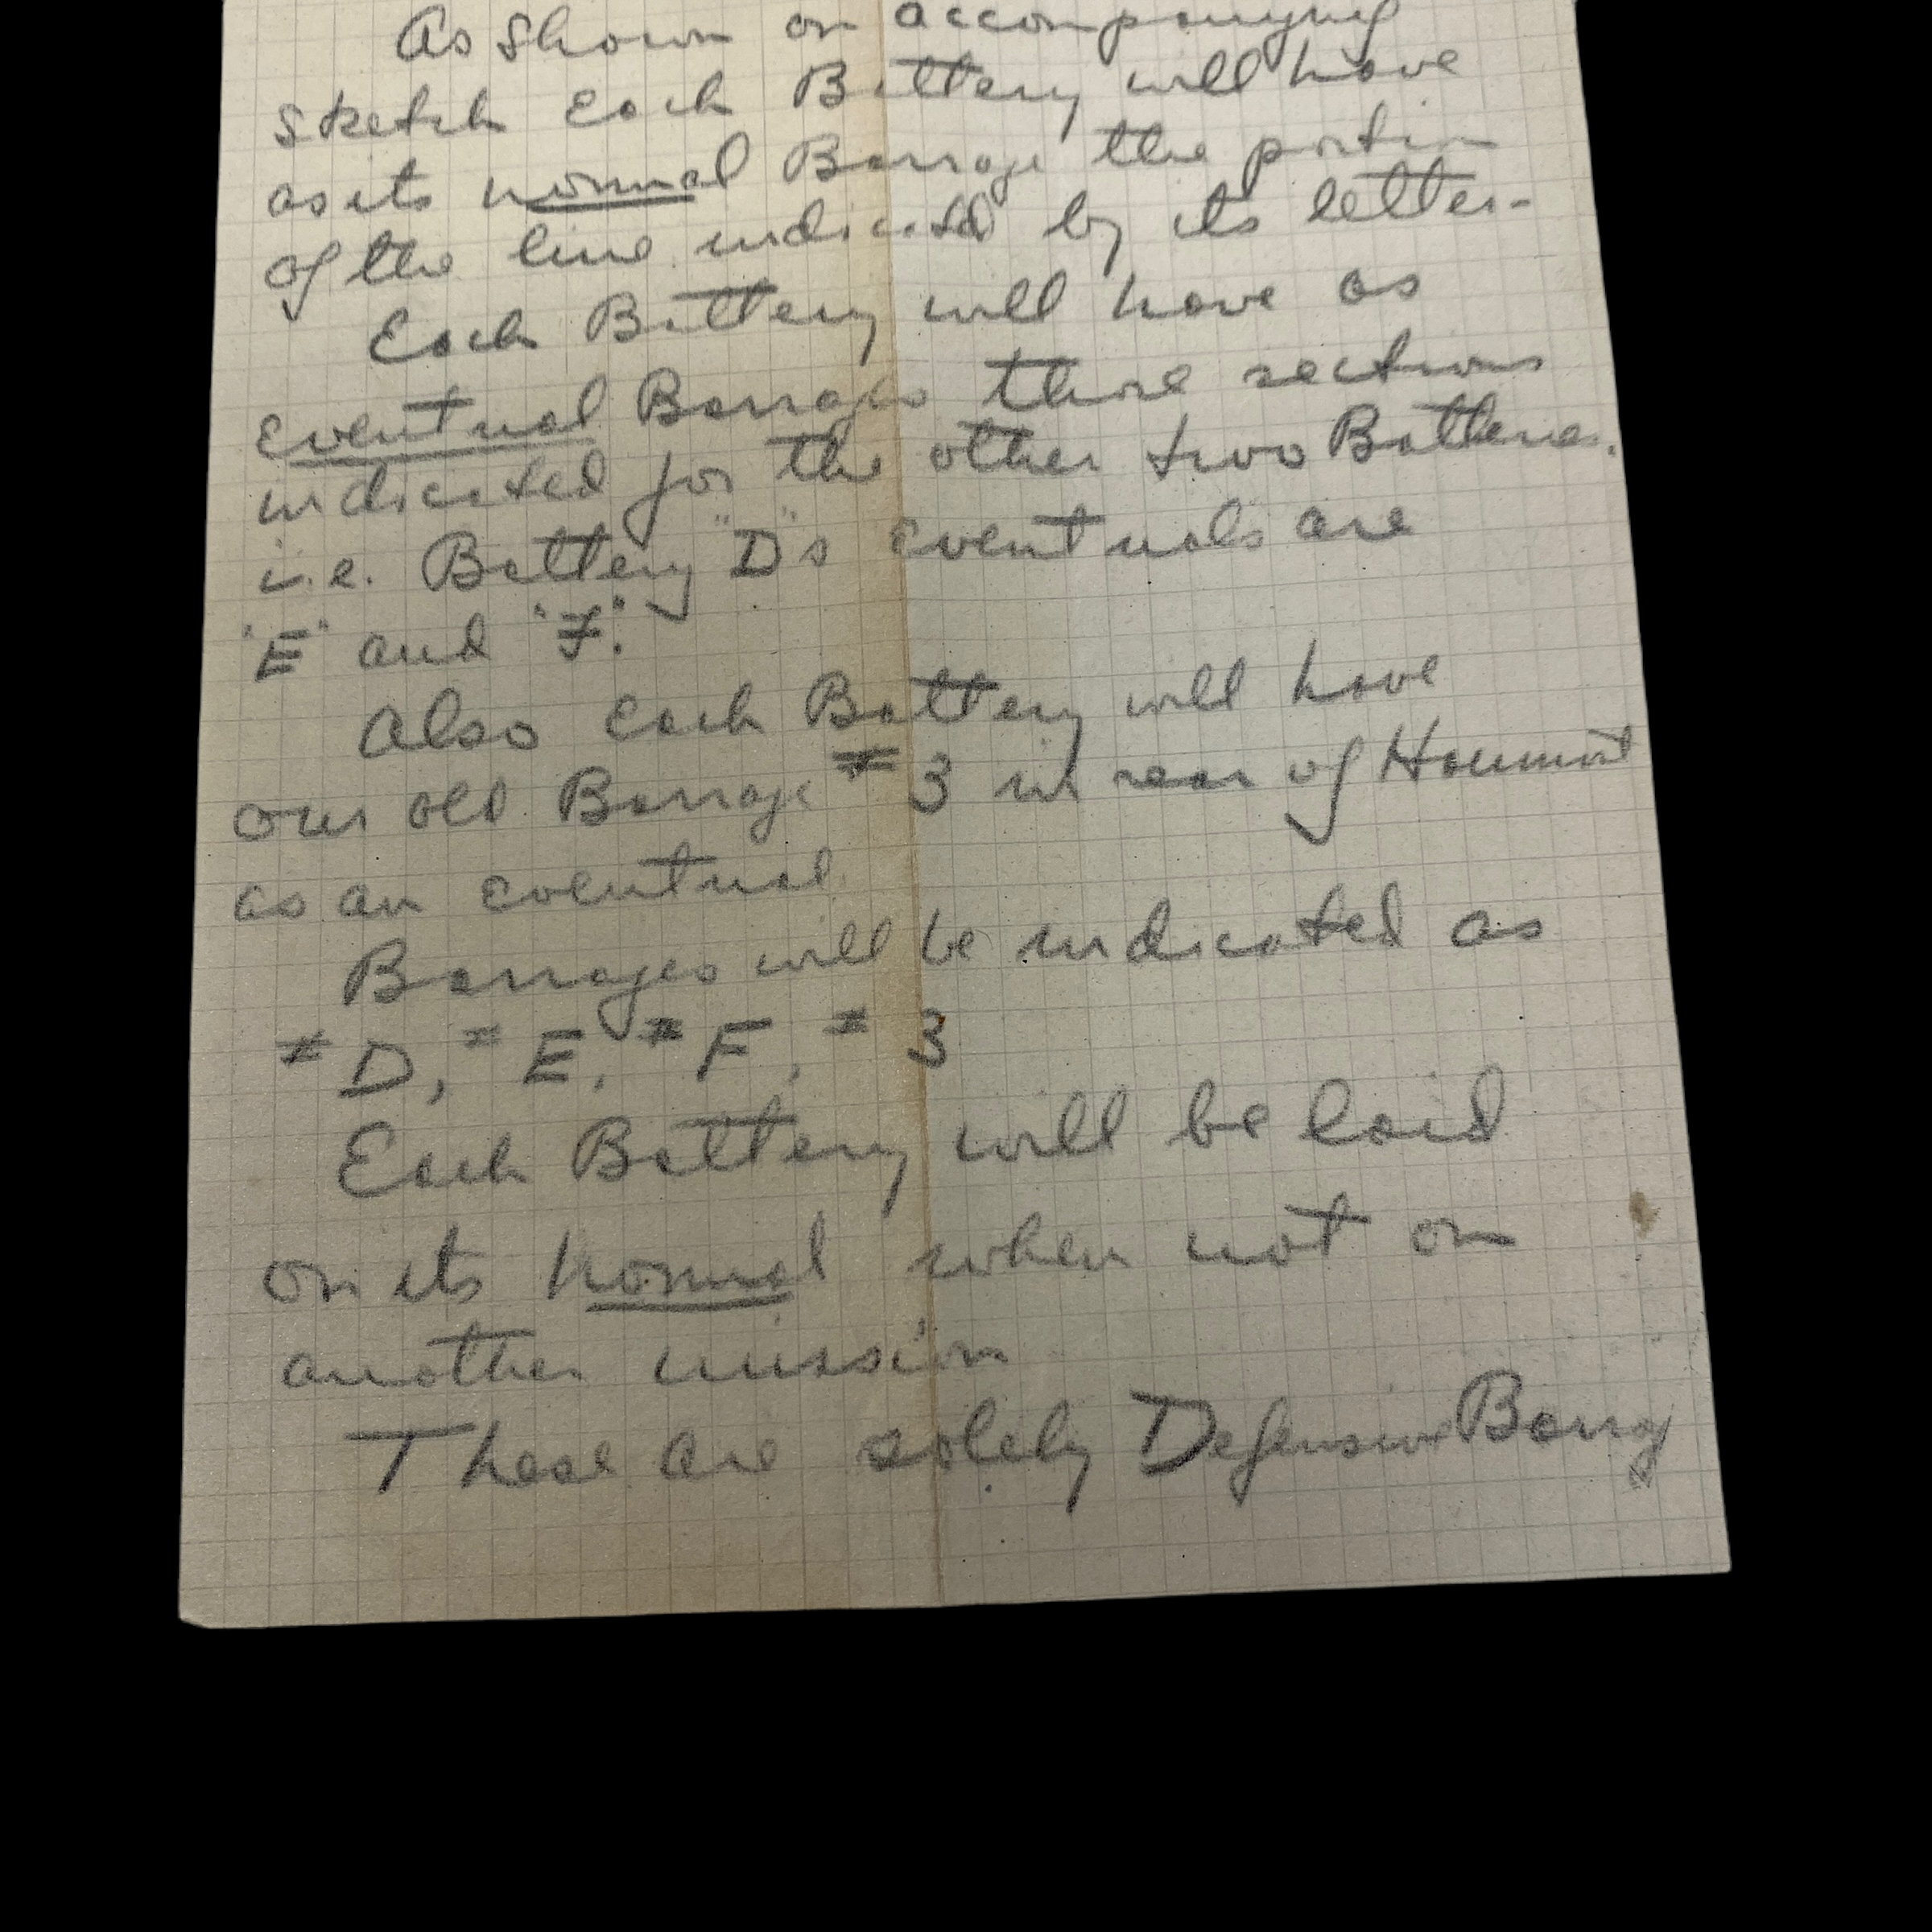 As shown on accompanying
sketch Each Battery will have
as its normal Barrage the portion
of the line indicated by its letter-
Each Battery will have as
Eventual Barrages those sections
indicated for the other two Batteries.
i.e. Battery "D"s eventuals are
"E" and "F".
Also Each Battery will have
our old Barrage # 3 in rear of Haumont
as an eventual
Barrages will be indicated as
# D, # E, # F, # 3
Each Battery will be laid
on its normal when not on
another mission
These are solely Defensive Barrg